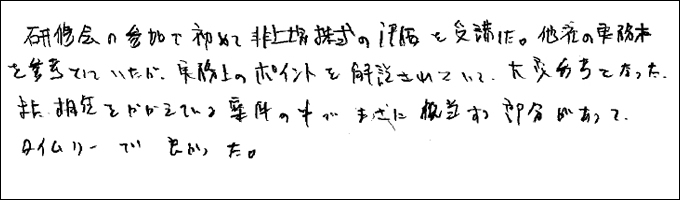 研修会の参加で初めて非上場株式の評価を受講した。他社の実務本
を参考にしていたが、実務上のポイントを解説されていて、大変参考となった。
また、現在をかかえている案件の中でまさに該当する部分があって、
タイムリーで良かった。